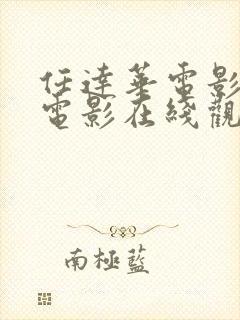 任達華電影
電影在綫觀
南極藍